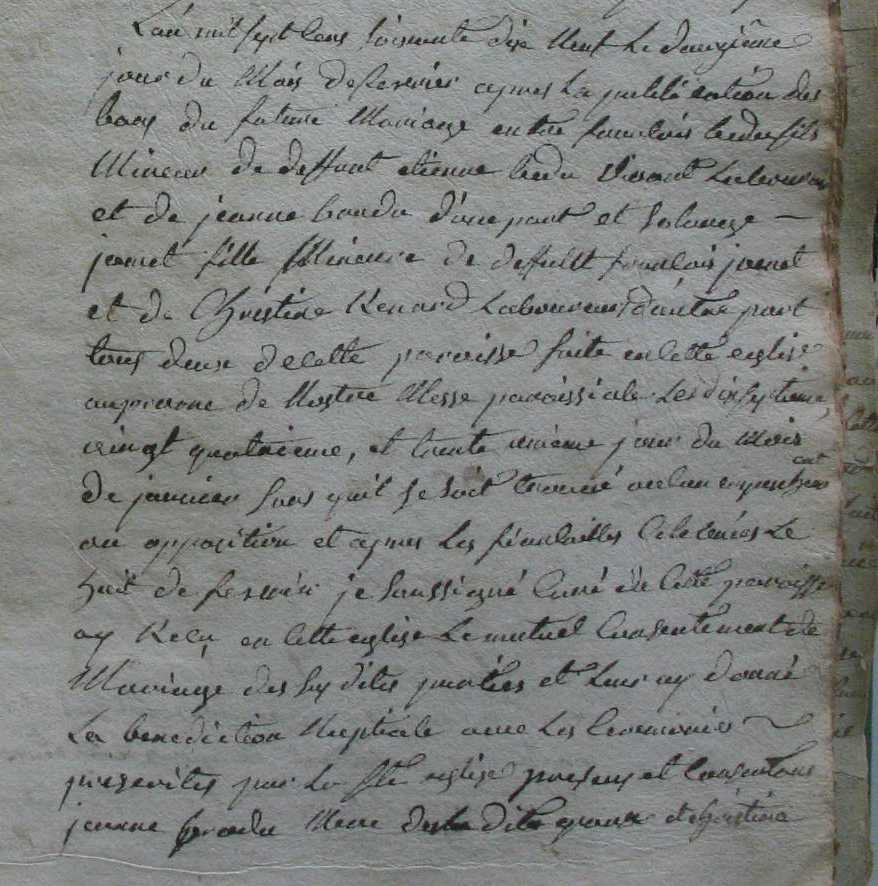 L'an mil sept cens soixante dix neuf le douzième
jour du mois de fevrier apres la publication des
bans du futur mariage entre francois bedu fils
mineur de deffunt etienne bedu vivant laboureur
et de jeanne bandu d'une part et solange —
jamet fille mineure de deffunt francois jamet
et de Christine Renard laboureurs d'autre part
tous deux de cette paroisse faite en cette eglise
au prone de nostre messe paroissiale les dix septieme,
vingt quatrieme, et trente unieme jour du mois
de janvier sans qu'il se soit trouvé aucun empeschement
ou opposition et apres les fiancailles celebrées le
huit de fevrier je soussigné curé de cette paroisse
ay reçu en cette eglise le mutuel consentement de
mariage des sus dites parties et leur ay donné
la benediction nuptiale avec les ceremonies
prescrites par la Ste eglise presens et consentans
jeanne mere dudit epoux et Christine